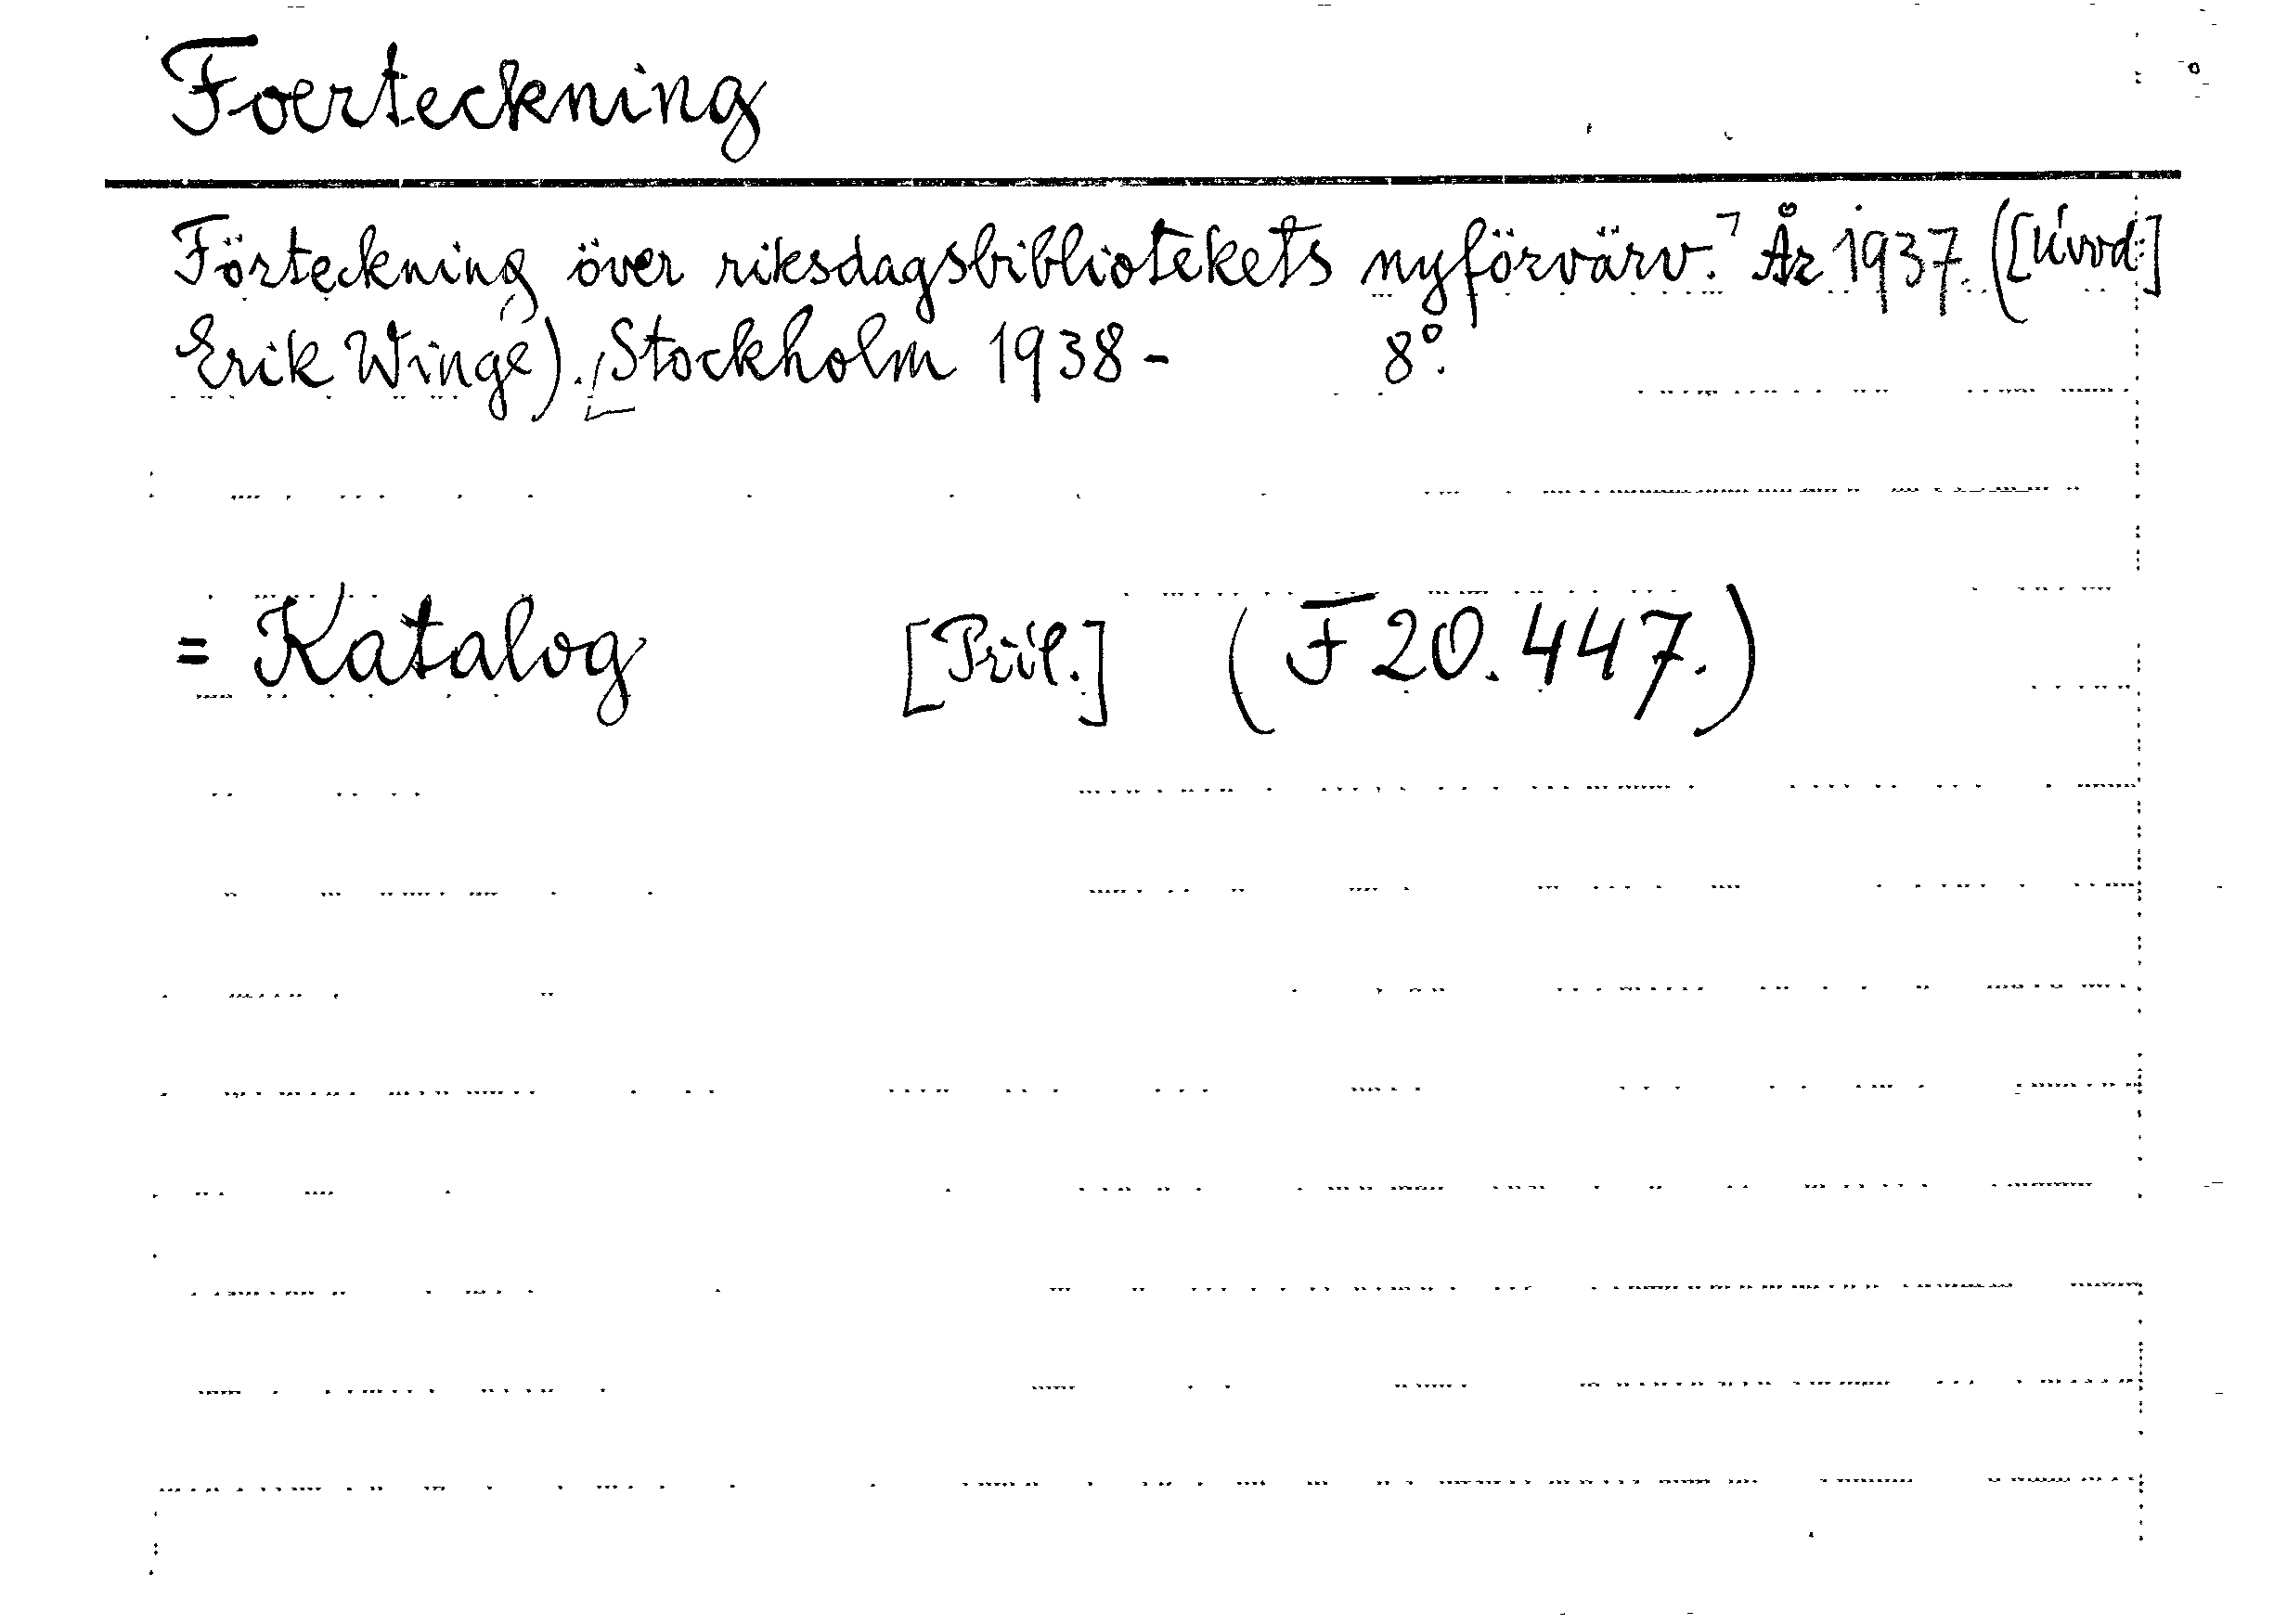 Foerteckning
Förteckning över riksdagsbibliotekets nyförvärv.⌝ År 1937. ([Úvod:]
Erik Winge). ⌊Stockholm 1938- 8°.
= Katalog [Příl.] (F 20.447.)